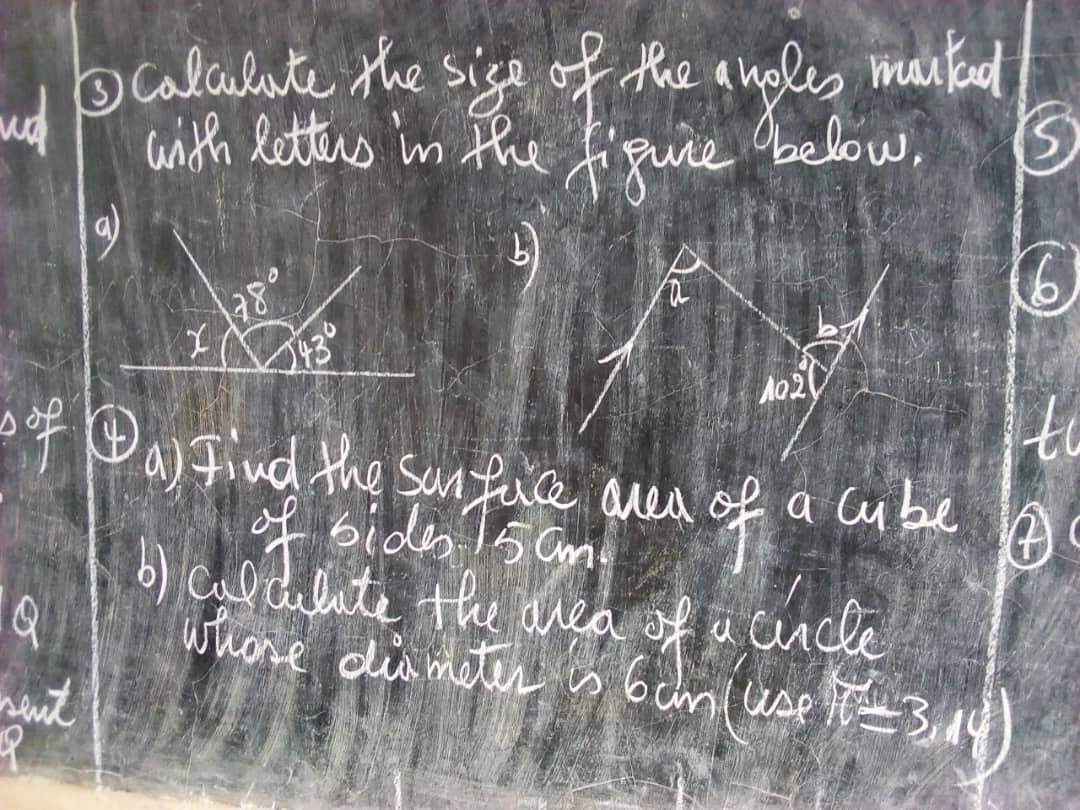 ③ Calculate the size of the angles marked
with letters in the figure below.
a)
78°
x
43°
b)
a
b
102°
④
a) Find the surface area of a cube
of sides 5cm.
b) Calculate the area of a circle
whose diameter is 6cm (use π=3,14)
s of
Q
sent
Q
⑤
⑥
⑦